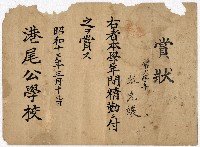 賞狀
右者本學年間精勤ニ付
之ヲ賞ス
昭和十三年三月十八日
港尾公學校